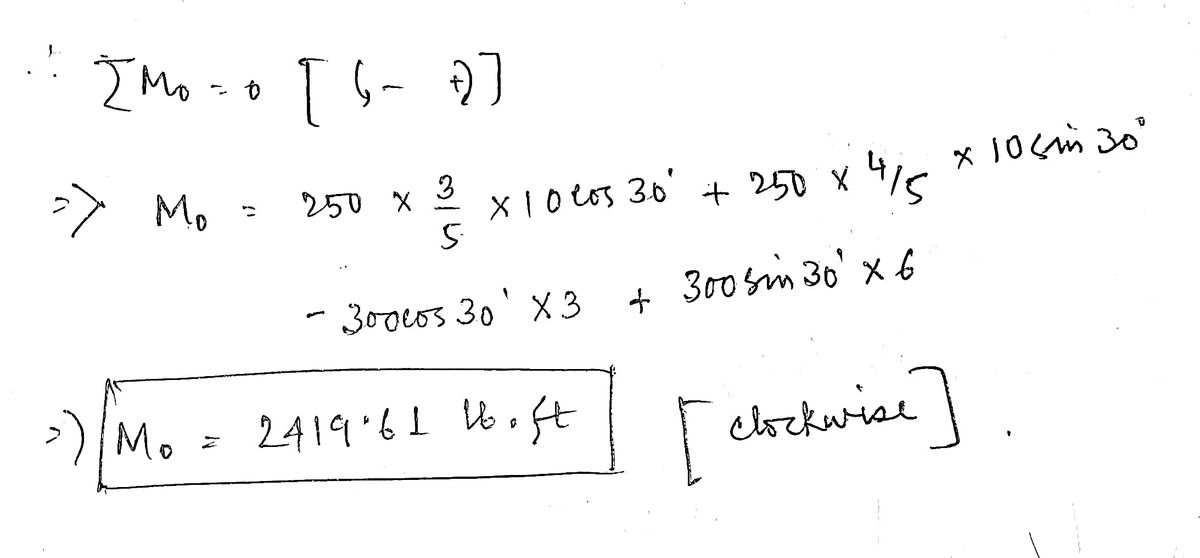 ∴ ΣM₀ = 0 [ ↺ - ↻+ ]
=> M₀ = 250 × 3/5 × 10 cos 30° + 250 × 4/5 × 10 sin 30°
- 300 cos 30° × 3 + 300 sin 30° × 6
=> M₀ = 2419.61 lb.ft [clockwise].